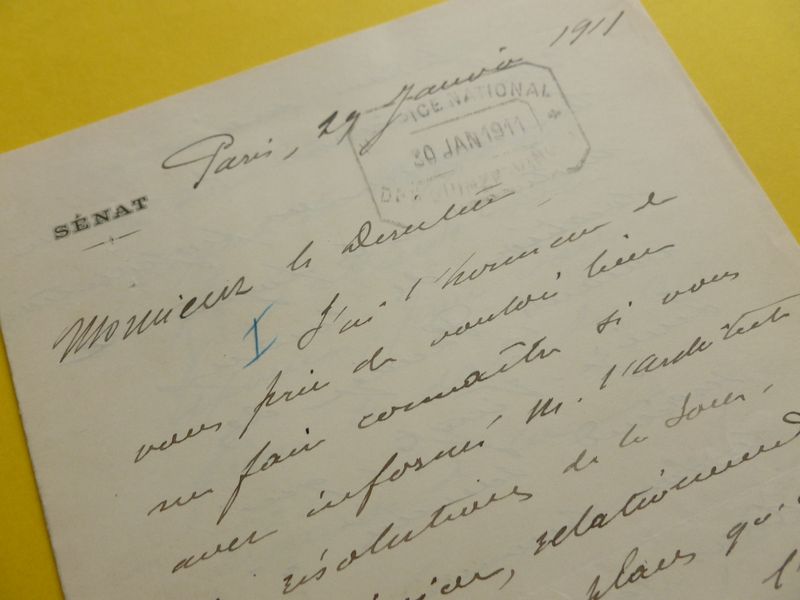 Paris, 29 Janvier 1911
HOSPICE NATIONAL
30 JAN 1911
DES QUINZE-VINGTS
SÉNAT
Monsieur le Directeur,
I
J'ai l'honneur de
vous prier de vouloir bien
me faire connaître si vous
avez informé M. l'architecte
résolutions de la
relativement
places qu'
l'